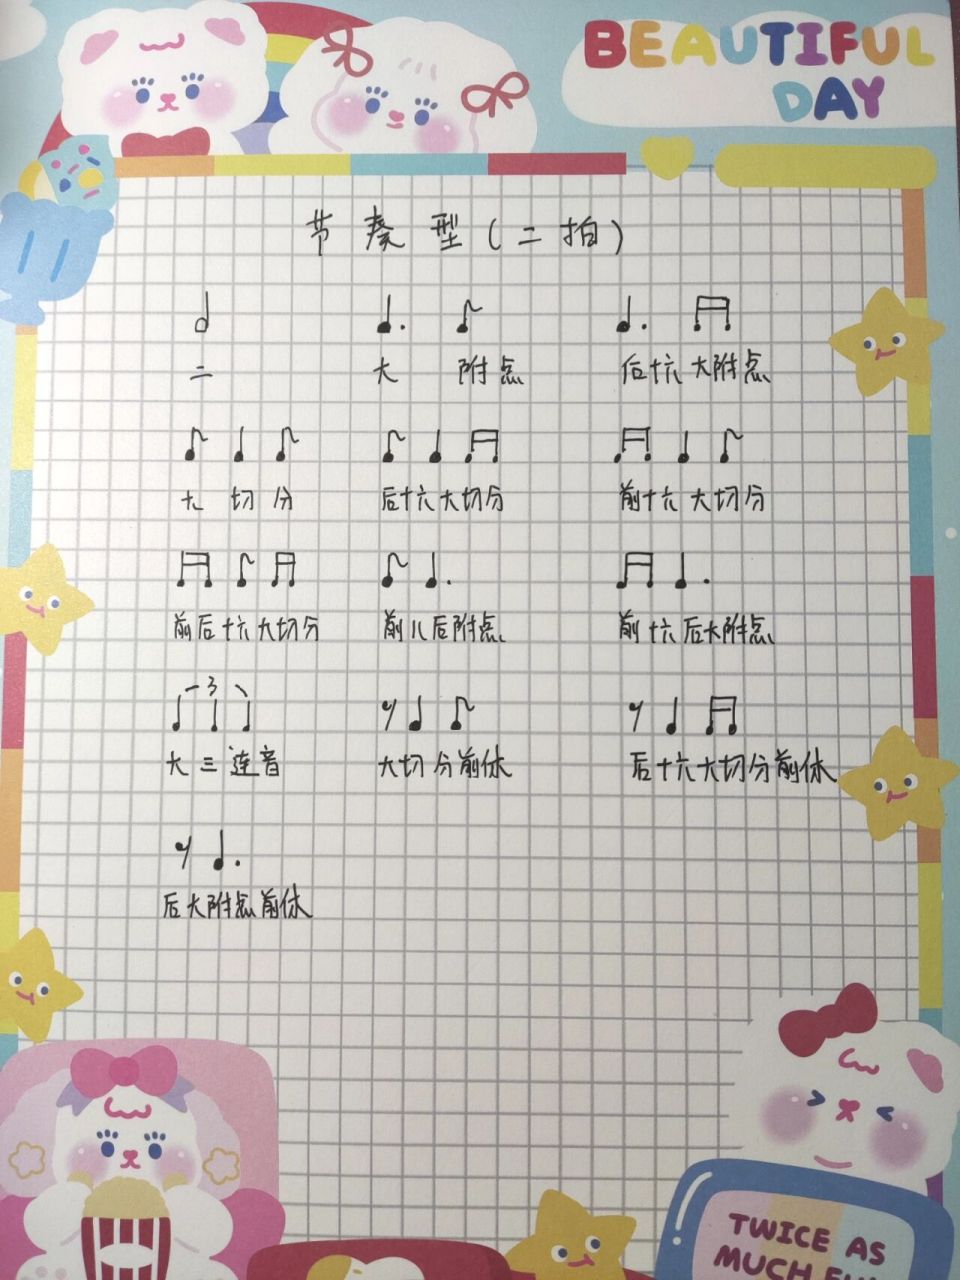 BEAUTIFUL
DAY
节奏型(二拍)
二 大附点 后十六大附点
大切分 后十六大切分 前十六大切分
前后十六大切分 前八后附点 前十六后大附点
3
大三连音 大切分前休 后十六大切分前休
后大附点前休
TWICE AS
MUCH